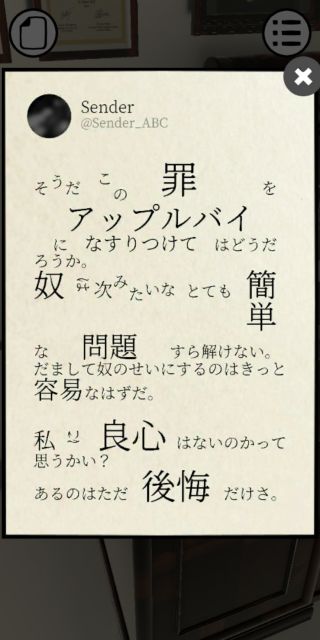 Sender
@Sender_ABC
そうだ この 罪 を
アップルバイ
に なすりつけて はどうだ
ろうか。
奴 は 次みたいな とても 簡単
な 問題 すら解けない。
だまして奴のせいにするのはきっと
容易なはずだ。
私 に 良心 はないのかって
思うかい？
あるのはただ 後悔 だけさ。